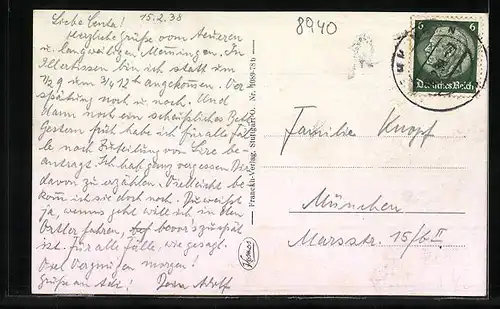 15.2.38
Liebe Centa!
Herzliche Grüße vom
u. langweiligen Memmingen. In
Illertissen bin ich statt um
1/2 9 um 3/4 12h angekommen. Ver-
spätung noch u. noch. Und
dann noch ein scheußliches Bett.
Gestern früh habe ich für alle Fäl-
le noch Zuteilung von
antragt. Ich hab ganz vergessen Dir
davon zu erzählen. Vielleicht be-
komm ich sie doch noch. Du weißt
ja, wenns geht will ich in den
Ortler fahren, bevor's zu spät
ist. Für alle Fälle, wie gesagt.
Viel Vergnügen morgen!
Grüße an
Dein Adolf
8940
6 6
Deutsches Reich
Franckh-Verlag, Stuttgart-O. Nr.
Kosmos
Familie Knopf
München
Marsstr. 15/6 II